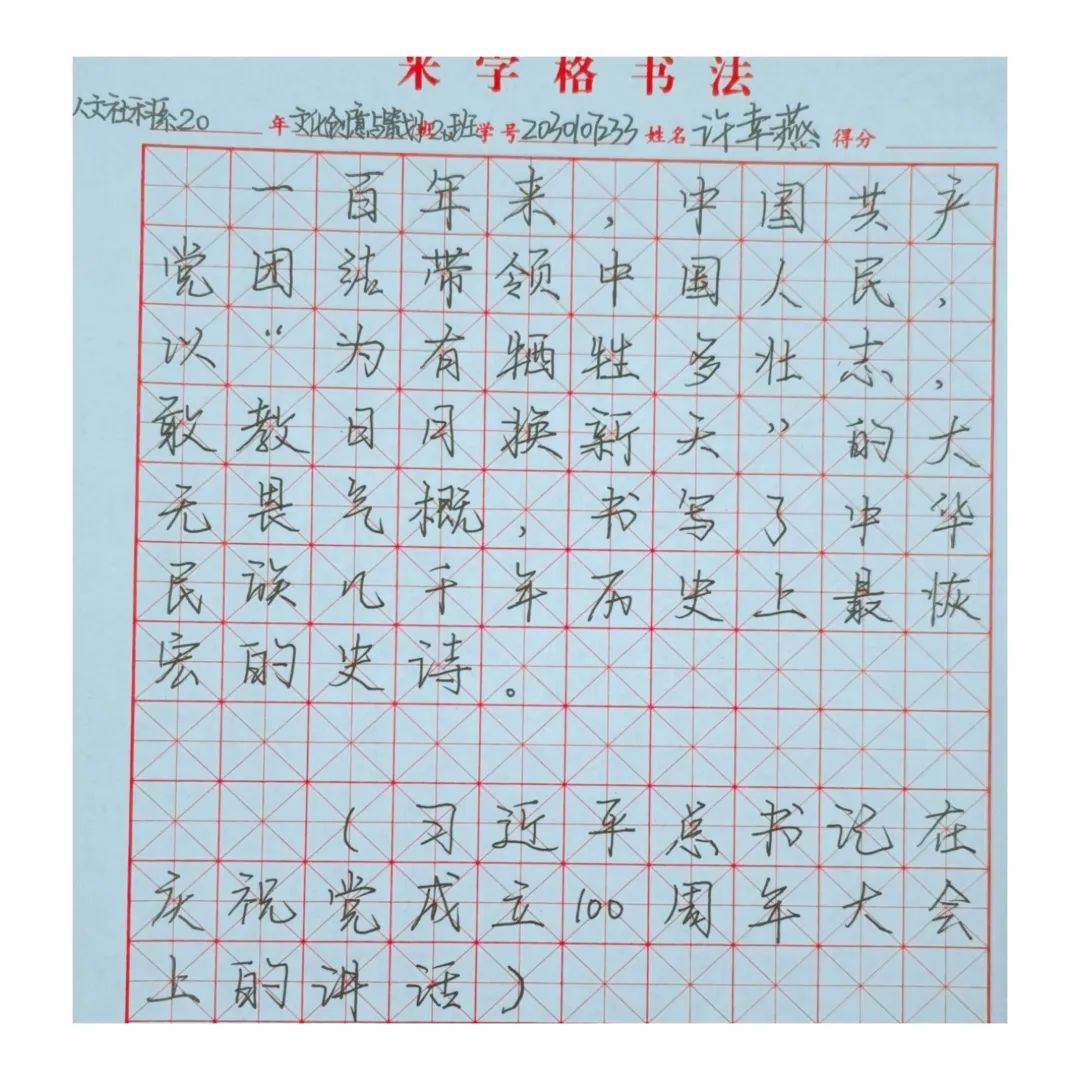 米字格书法
人文社科系20 年 文化创意与策划 班 2班 学号 姓名 许幸燕 得分
一百年来，中国共产
党团结带领中国人民，
以“为有牺牲多壮志，
敢教日月换新天”的大
无畏气概，书写了中华
民族几千年历史上最恢
宏的史诗。
（习近平总书记在
庆祝党成立100周年大会
上的讲话）